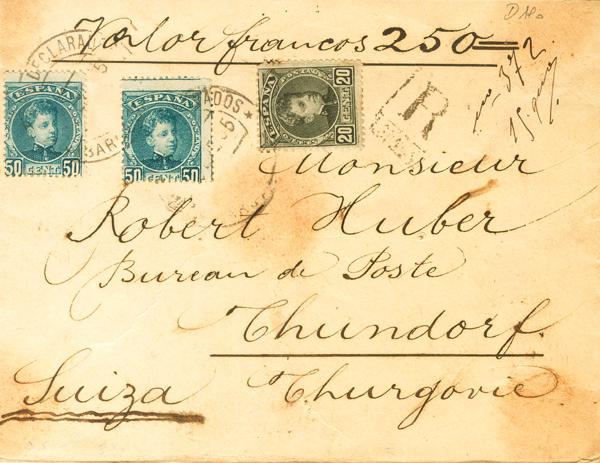 Valor francos 250=
DECLARADOS
BAR
ESPAÑA
50 CENT 50
ESPAÑA
50 CENT 50
ESPAÑA
POSTAL
20 CENT 20
R
no 372
15 gr
Monsieur
Robert Huber
Bureau de Poste
Thundorf.
Suiza Thurgovie